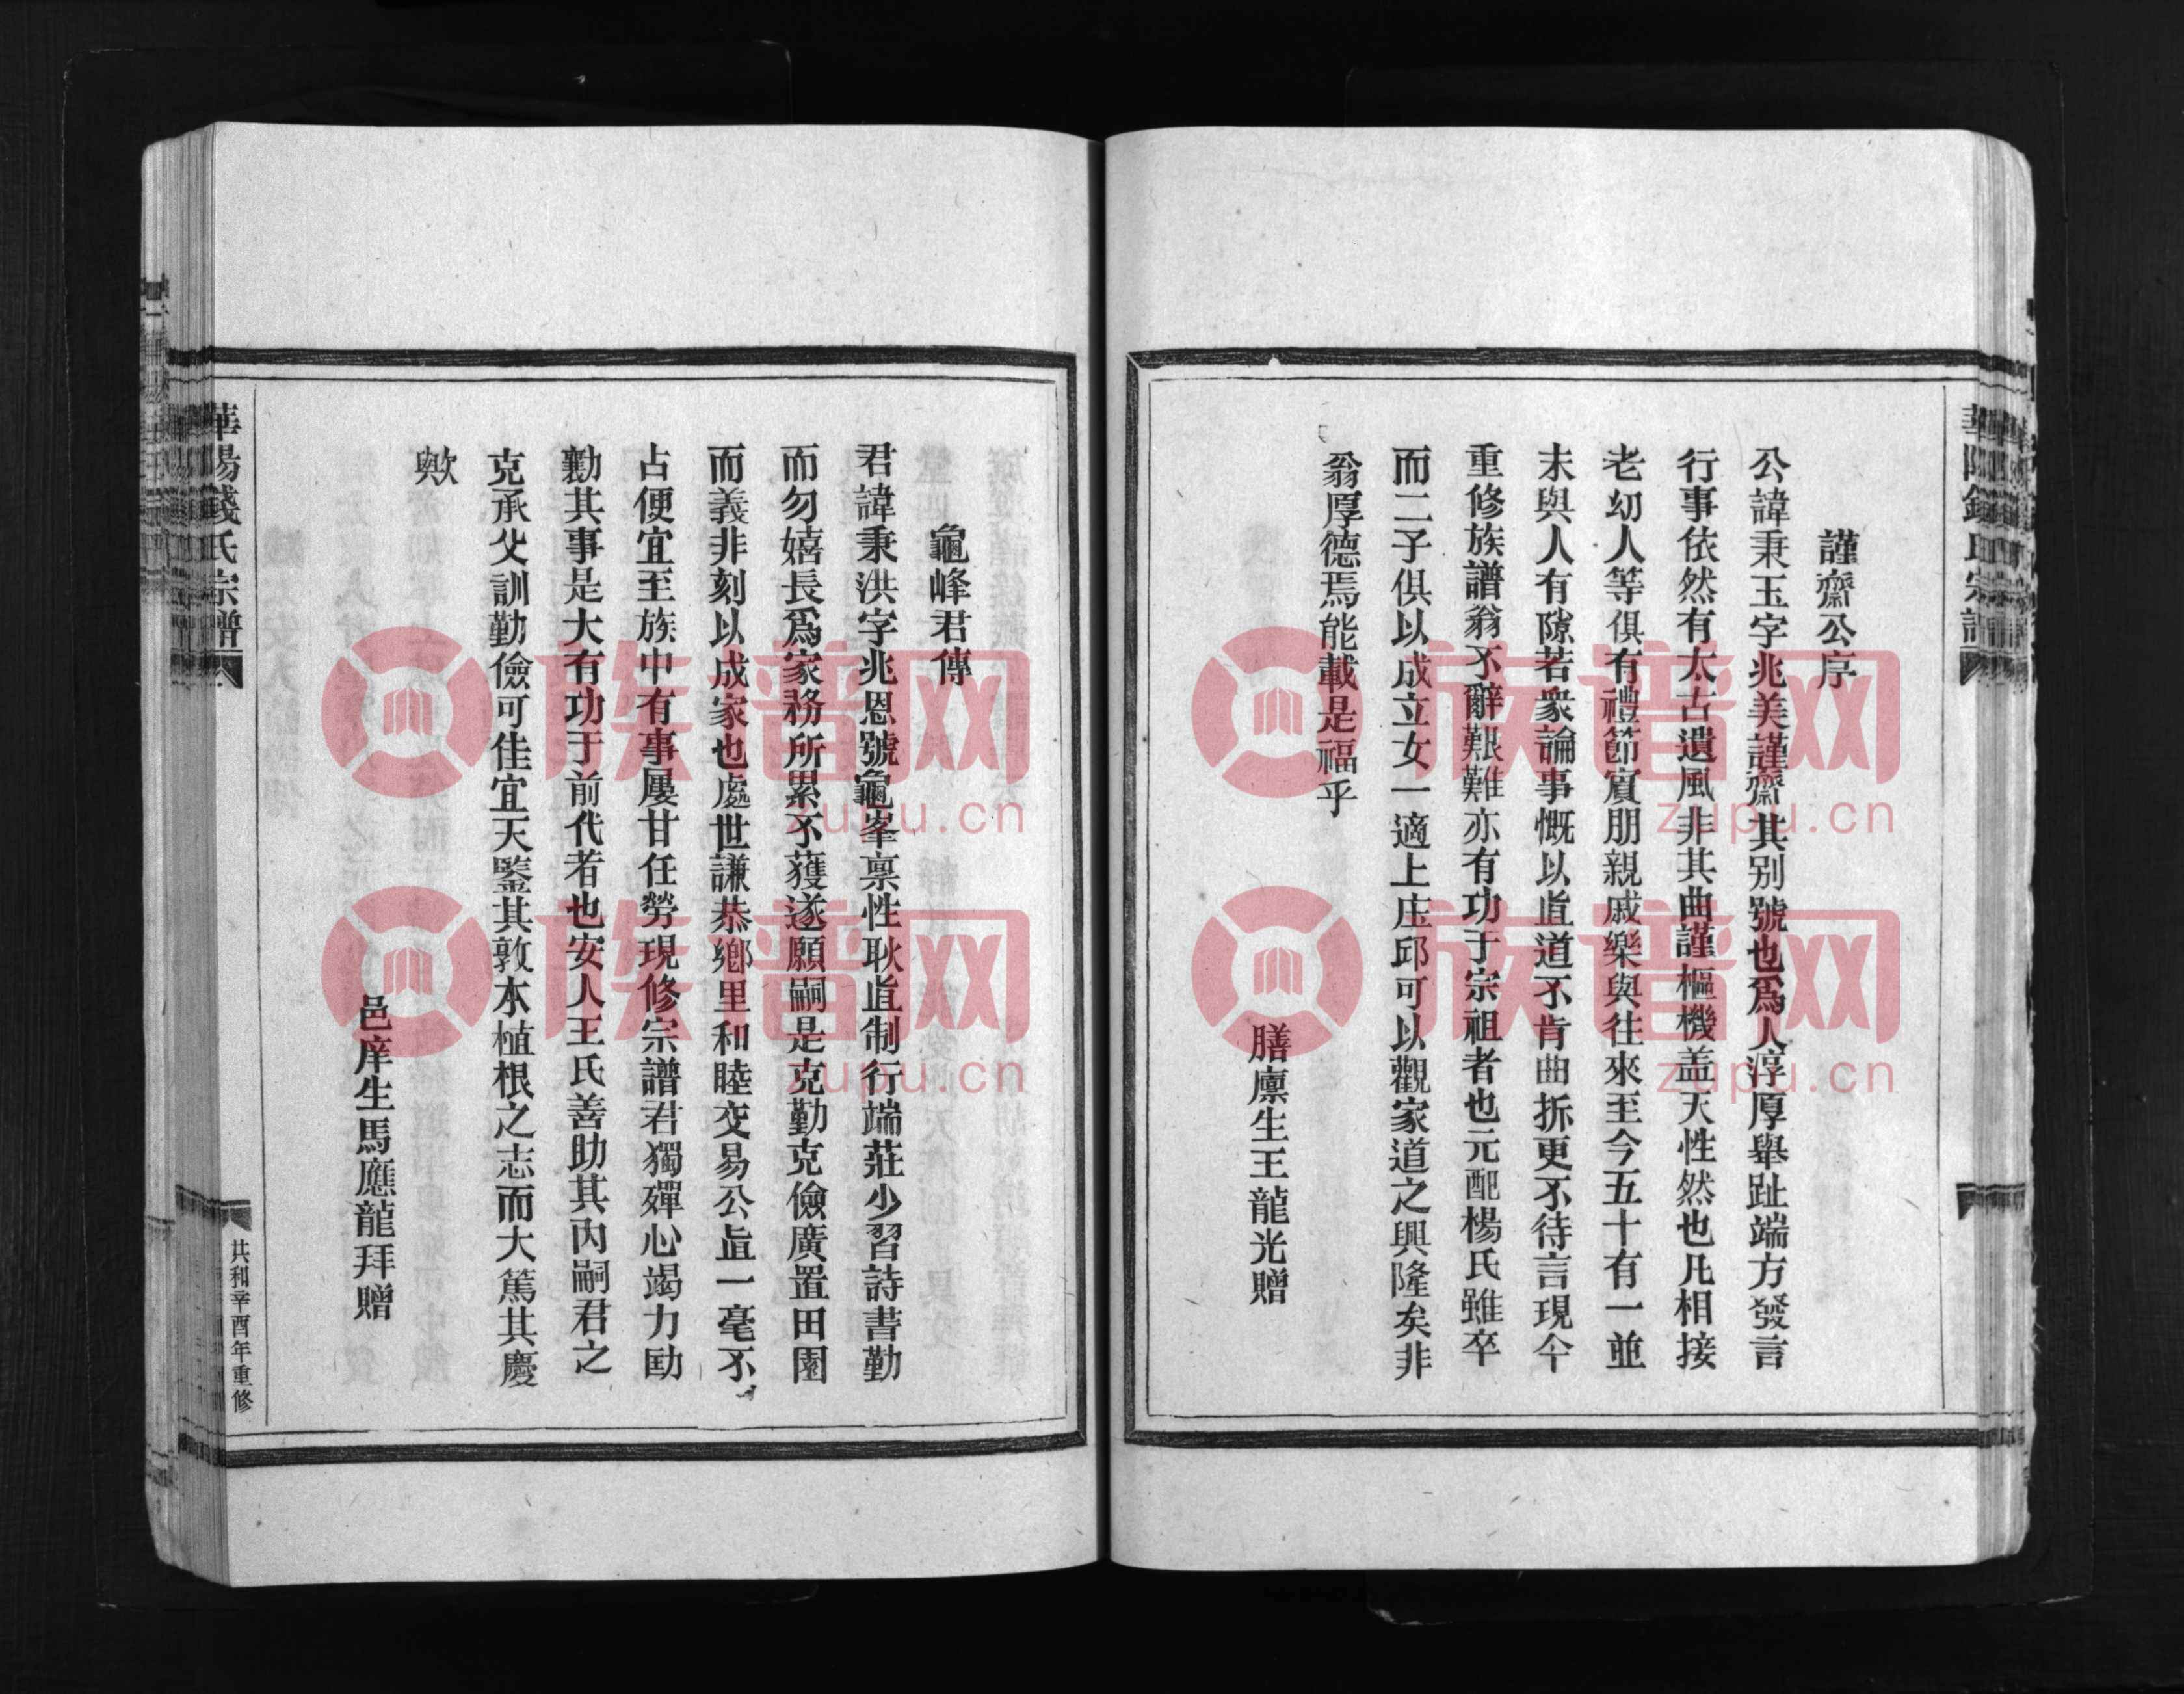 謹齋公序
公諱秉玉字兆美謹齋其别號也爲人淳厚舉趾端方發言
行事依然有太古遺風非其曲謹樞機盖天性然也凡相接
老幼人等俱有禮節賔朋親戚樂與往來至今五十有一並
末與人有隙若衆論事慨以直道不肯曲折更不待言現今
重修族譜翁不辭艱難亦有功于宗祖者也元配楊氏雖卒
而二子俱以成立女一適上庄邱可以觀家道之興隆矣非
翁厚德焉能載是福乎
膳廩生王龍光贈
龜峰君傳
君諱秉洪字兆恩號龜峯禀性耿直制行端莊少習詩書勤
而勿嬉長爲家務所累不獲遂願嗣是克勤克儉廣置田園
而義非刻以成家也處世謙恭鄉里和睦交易公直一毫不
占便宜至族中有事屢甘任勞現修宗譜君獨殫心竭力劻
勷其事是大有功于前代者也安人王氏善助其内嗣君之
克承父訓勤儉可佳宜天鑒其敦本植根之志而大篤其慶
歟
邑庠生馬應龍拜贈
華陽錢氏宗譜
共和辛酉年重修
族谱网
zupu.cn
族谱网
zupu.cn
族谱网
zupu.cn
族谱网
zupu.cn